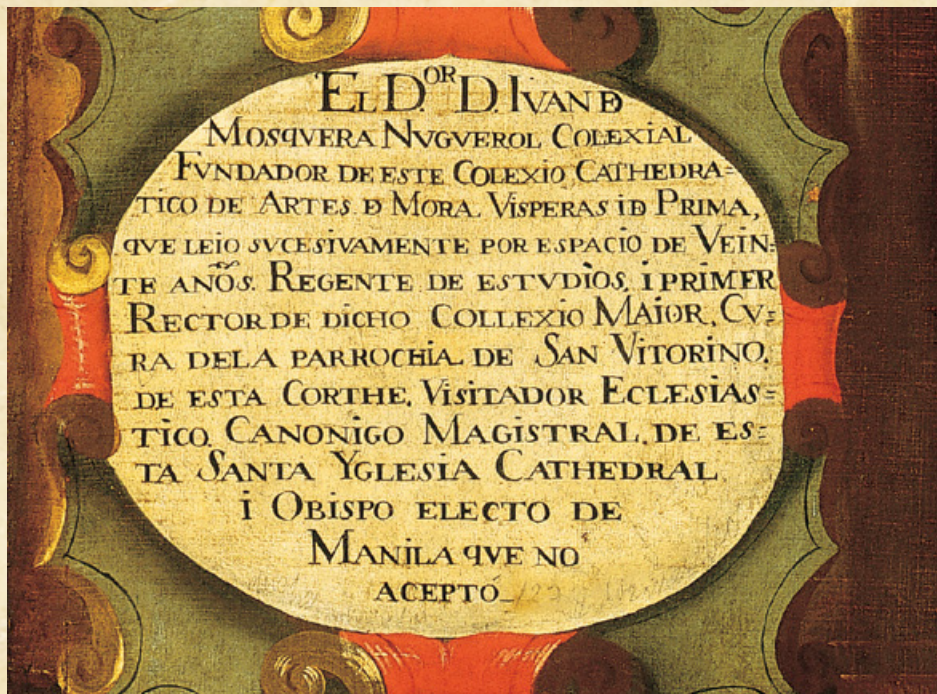 El D.OR D. IVAN DE
MOSQVERA NVGVEROL COLEXIAL
FVNDADOR DE ESTE COLEXIO CATHEDRA=
TICO DE ARTES. DE MORA. VISPERAS i DE PRIMA,
QVE LEIO SVCESIVAMENTE POR ESPACIO DE VEIN=
TE AÑOS. REGENTE DE ESTVDIOS. i PRIMER
RECTOR DE DICHO COLLEXIO MAIOR. CV=
RA DE LA PARROCHIA DE SAN VITORINO.
DE ESTA CORTHE. VISITADOR ECLESIAS=
TICO. CANONIGO MAGISTRAL. DE ES=
TA SANTA YGLESIA CATHEDRAL
i OBISPO ELECTO DE
MANILA QVE NO
ACEPTÓ